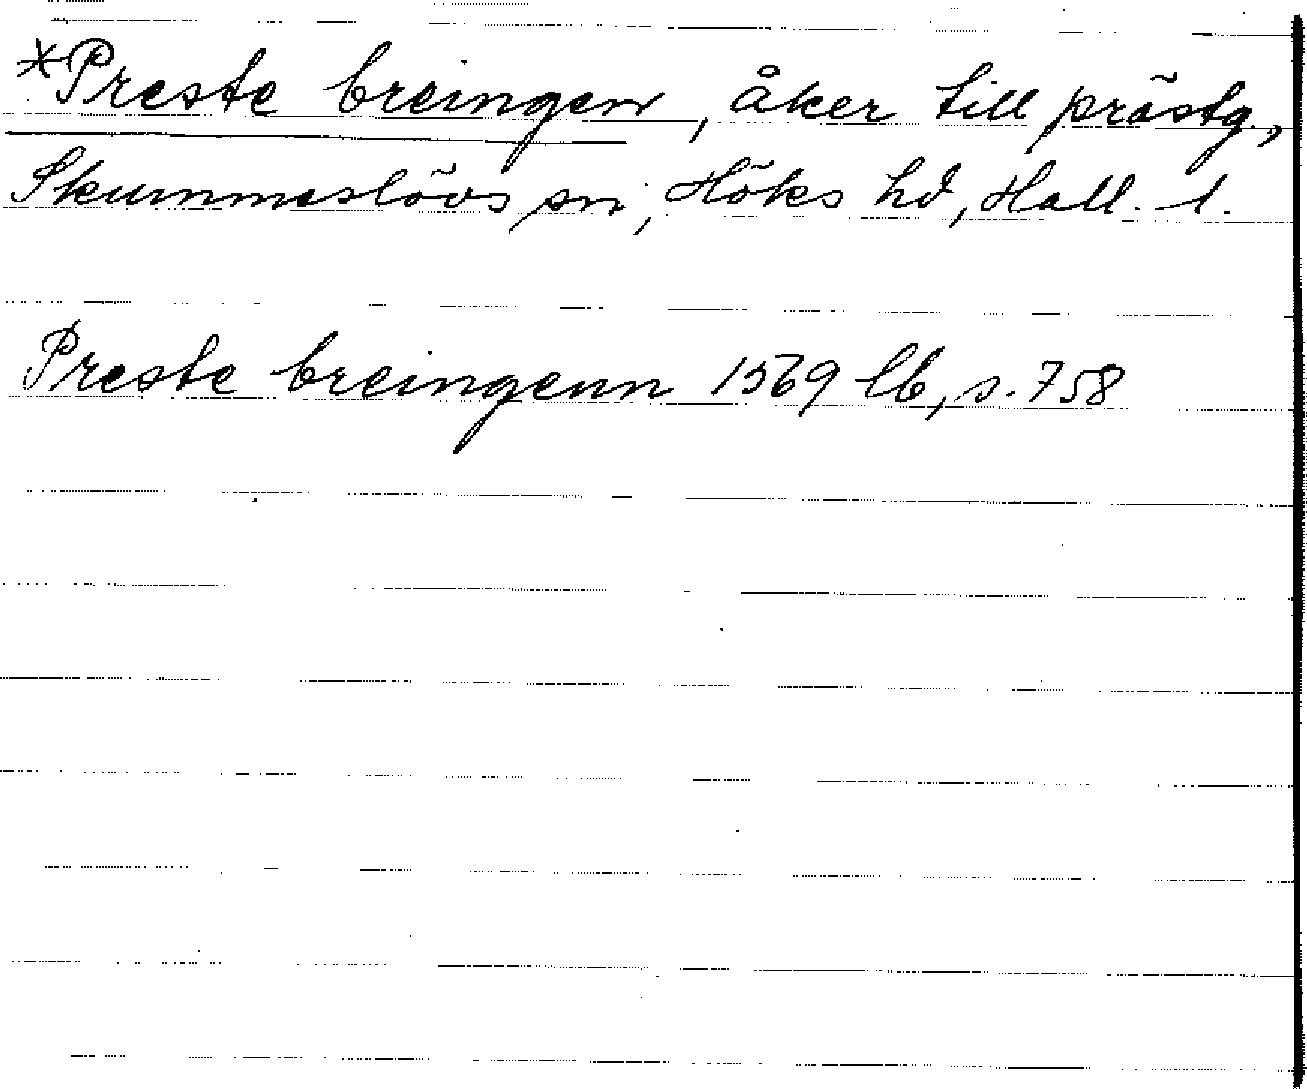 *Preste breingen, åker till prästg.,
Skummeslövs sn, Höks hd, Hall. l.
Preste breingenn 1569 lb, s. 758